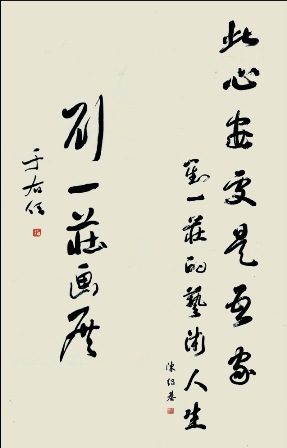 此心安處是吾家
劉一莊的藝術人生
刘一莊画展
于右任